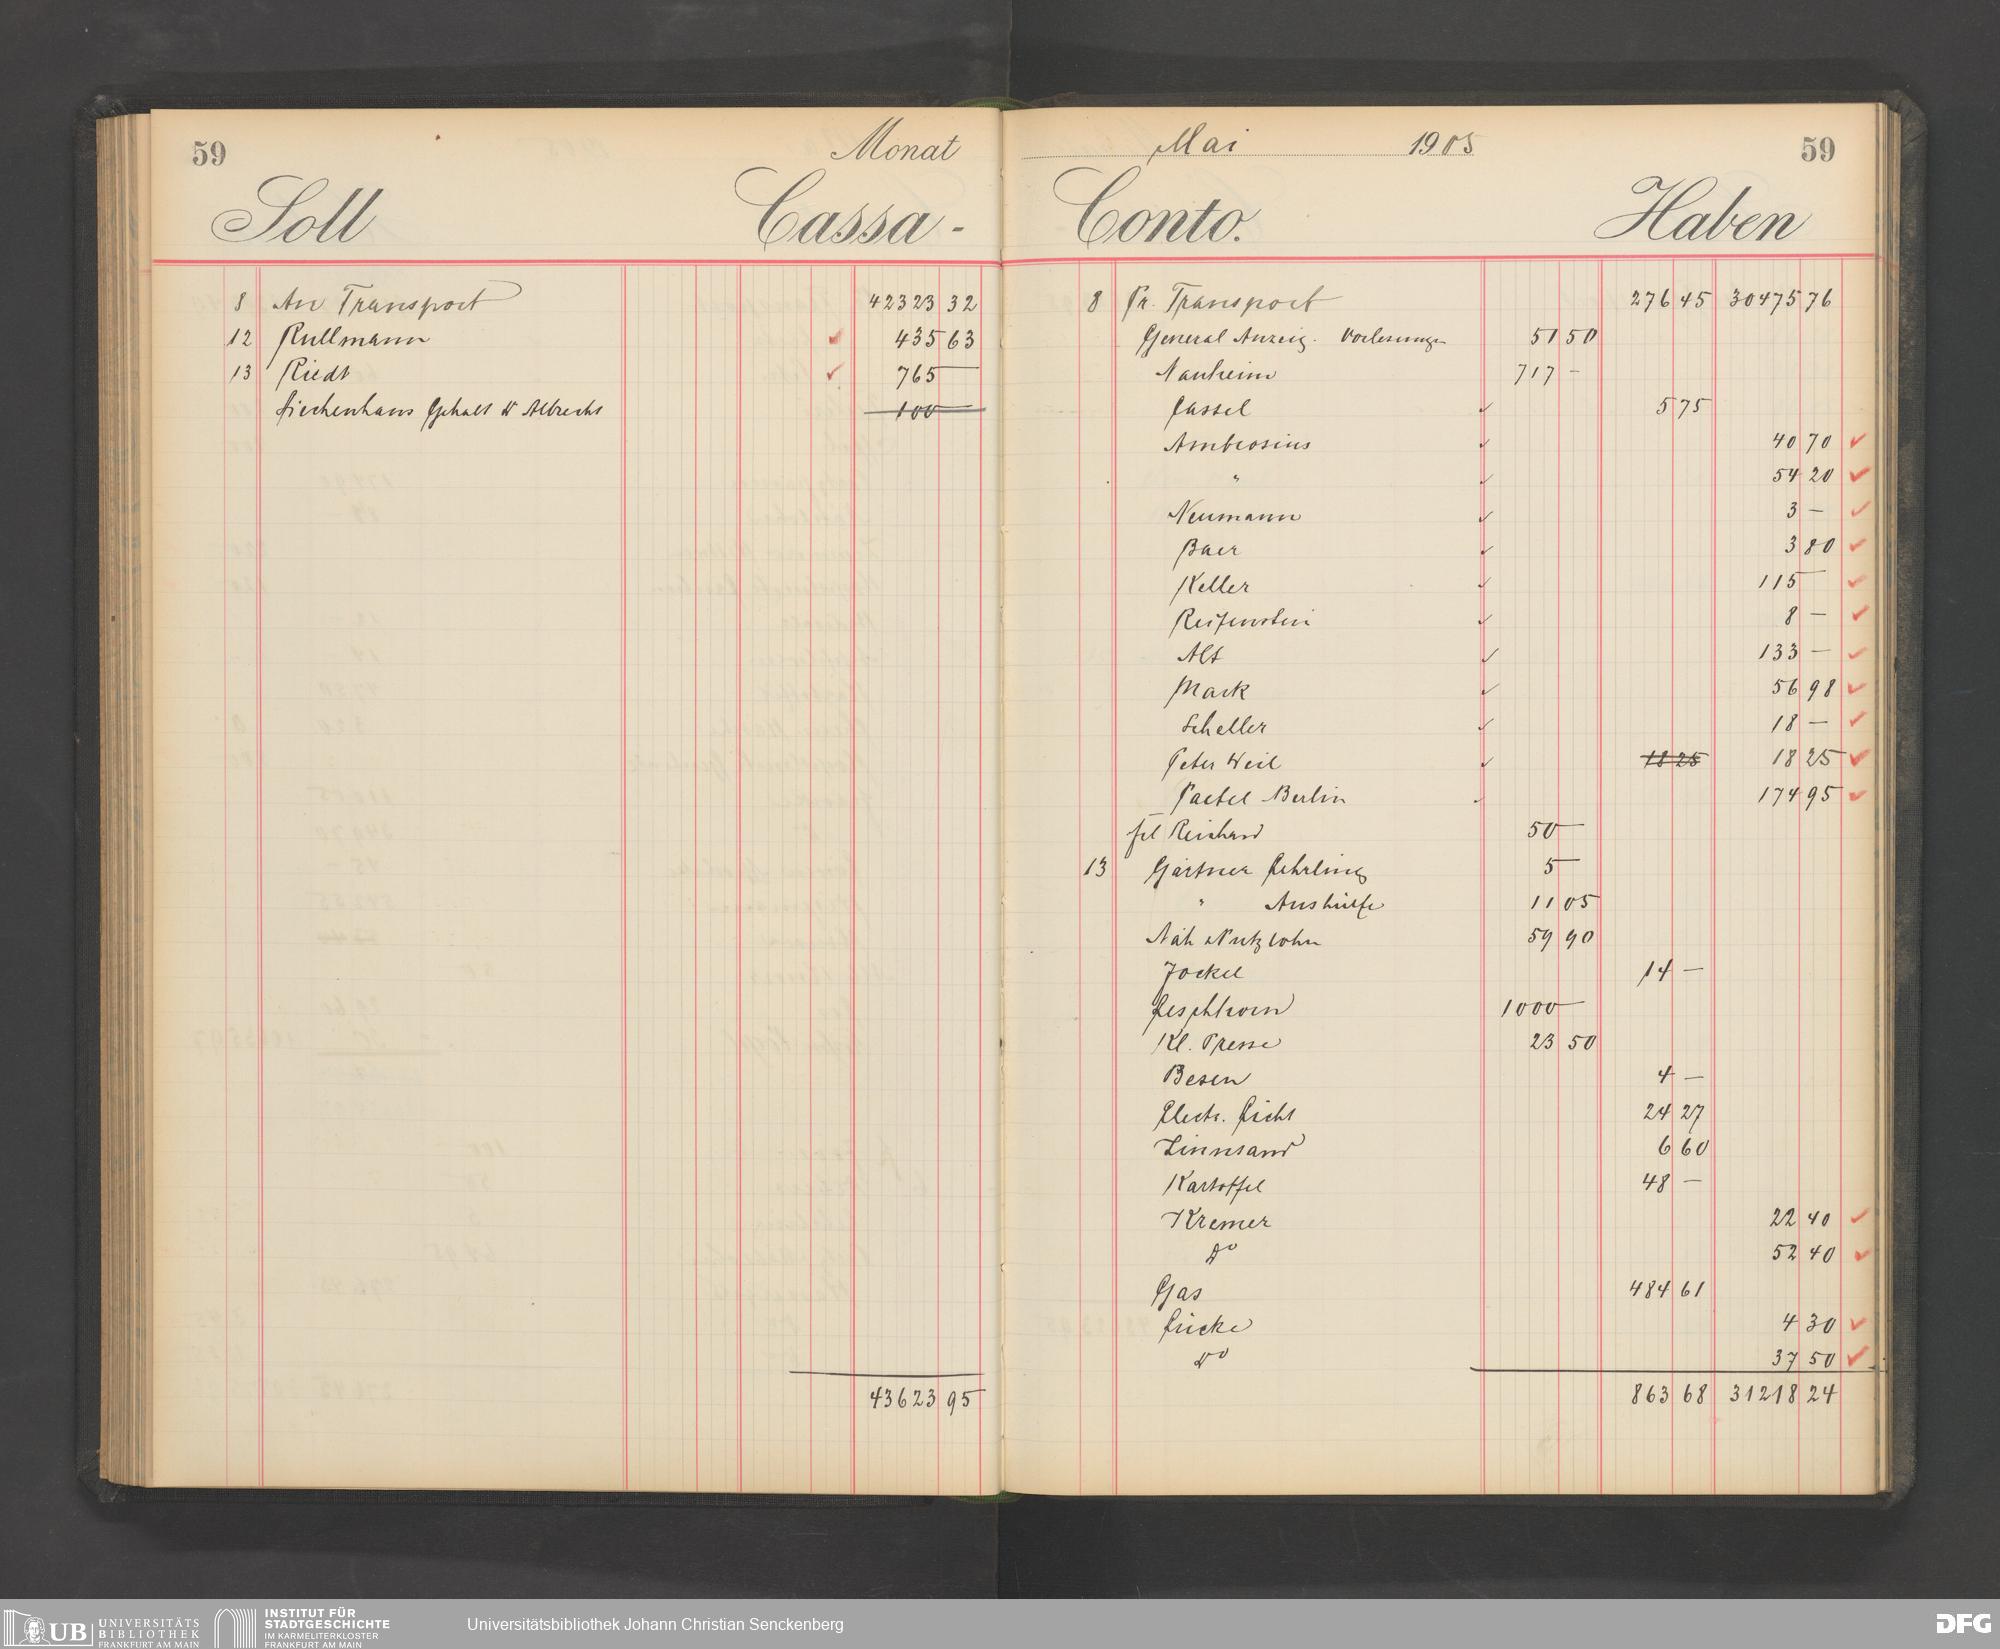 59 Monat Mai 1905 59
Soll Cassa - Conto. Haben
8 An Transport 42323 32
12 Rullmann ✓ 435 63
13 Riedt ✓ 765 —
Siechenhaus Gehalt W Albrecht 100
43623 95
8 Pr. Transport 276 45 30475 76
General Anzeig. Vorlesungen 51 50
Nauheim 717 –
Cassel ✓ 5 75
Ambrosius ✓ 40 70 ✓
" ✓ 54 20 ✓
Neumann ✓ 3 – ✓
Baer ✓ 3 80 ✓
Keller ✓ 115 – ✓
Reifenstein ✓ 8 – ✓
Alt ✓ 133 – ✓
Mack ✓ 56 98 ✓
Scheller ✓ 18 – ✓
Peter Weil ✓ 18 25 18 25 ✓
Paetel Berlin ✓ 174 95 ✓
frl Reinhard 50 —
13 Gärtner Lehrling 5 —
" Aushülfe 11 05
Näh & Putzlohn 59 90
Jockel 14 –
Leschhorn 1000 —
Kl. Presse 23 50
Besen 4 –
Electr. Licht 24 27
Zinnsand 6 60
Kartoffel 48 –
Kremer 22 40 ✓
Do 52 40 ✓
Gas 484 61
Lücke 4 30 ✓
Do 37 50 ✓
863 68 31218 24
UB UNIVERSITÄTS
BIBLIOTHEK
FRANKFURT AM MAIN
INSTITUT FÜR
STADTGESCHICHTE
IM KARMELITERKLOSTER
FRANKFURT AM MAIN
Universitätsbibliothek Johann Christian Senckenberg
DFG